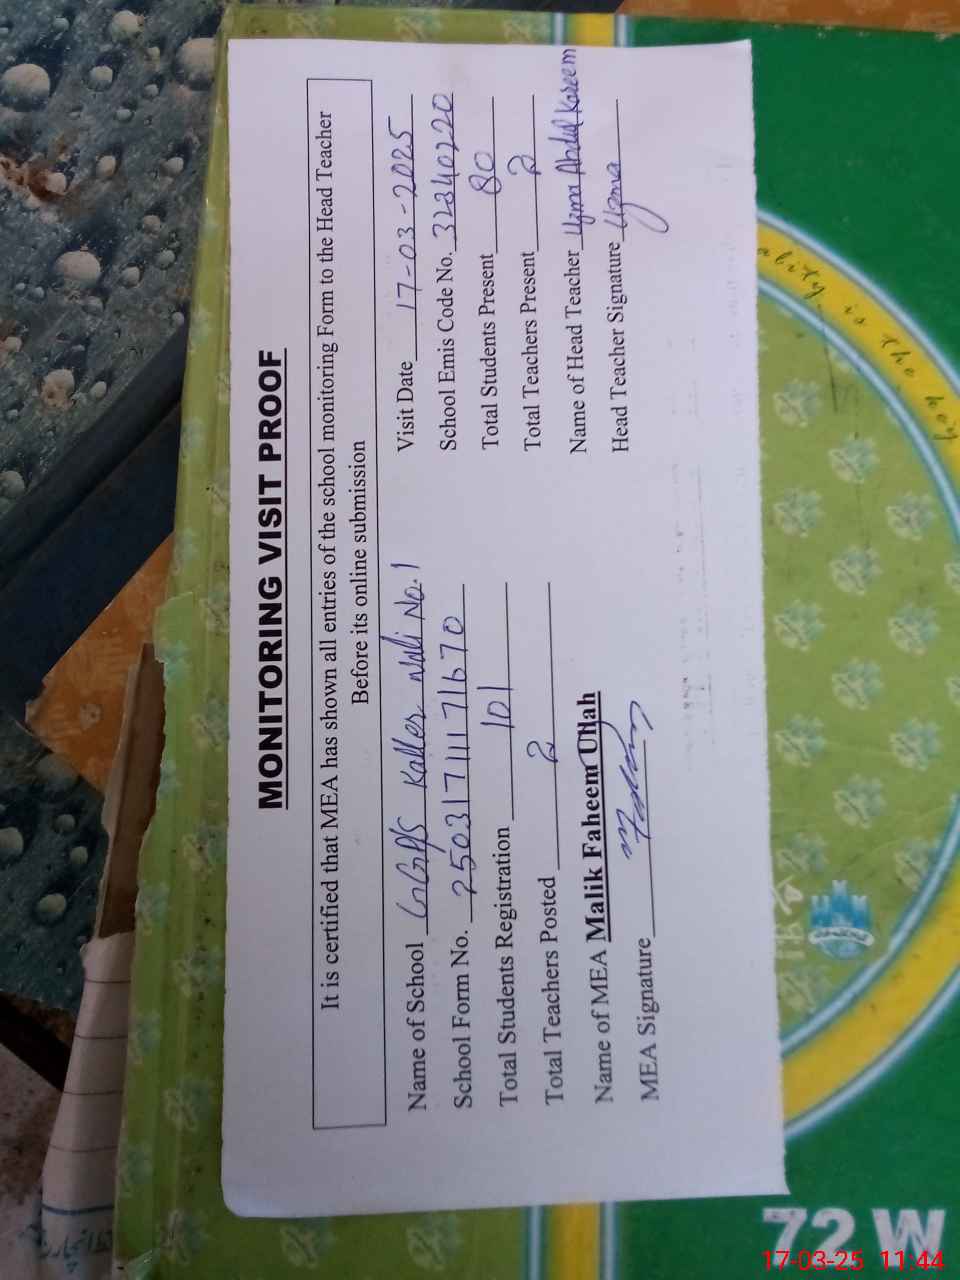 MONITORING VISIT PROOF
It is certified that MEA has shown all entries of the school monitoring Form to the Head Teacher
Before its online submission
Name of School GGPS Kaller Wali No.1
Visit Date 17-03-2025
School Form No. 25031711171670
School Emis Code No. 32340220
Total Students Registration 101
Total Students Present 80
Total Teachers Posted 2
Total Teachers Present 2
Name of MEA Malik Faheem Ullah
Name of Head Teacher Uzma Abdul Kareem
MEA Signature
Head Teacher Signature Uzma
72 W
17-03-25 11:44